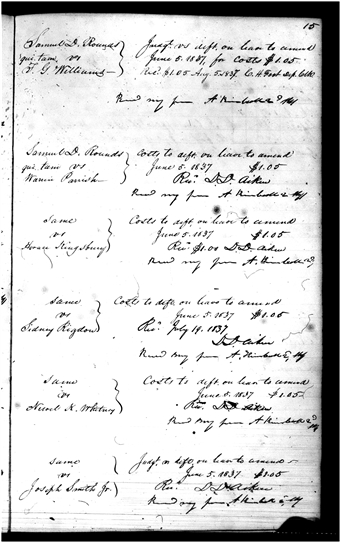 15
Samuel D. Rounds } Judgt. vs deft. on leave to amend
qui. tam. vs June 5. 1837, for costs $1.05
T. G. Williams Recd. $1.05 Aug. 5. 1837 C. H. Foot Dep. Clk.
Recd my fees A. Kimball 2d Shff
Samuel D. Rounds } Costs to deft. on leave to amend
qui tam vs June 5. 1837 $1.05
Warren Parrish Recd. D. D. Aiken
Recd my fees A. Kimball 2d Shff
same } Costs to deft. on leave to amend
vs June 5. 1837 $1.05
Horace Kingsbury Recd $1.00 D. D. Aiken
Recd my fees A. Kimball 2d
same } Costs to deft. on leave to amend
vs June 5. 1837 $1.05
Sidney Rigdon Recd. July 14. 1837
D. D. Aiken
Recd my fees A. Kimball 2d Shff
same } Costs to deft. on leave to amend
vs June 5. 1837 $1.05
Newel K. Whitney Recd. D. D. Aiken
Recd my fees A. Kimball 2d Shff
same } Judgt. on deft. on leave to amend
vs June 5. 1837 $1.05
Joseph Smith Jr. Recd. D. D. Aiken
Recd my fees A. Kimball 2d Shff